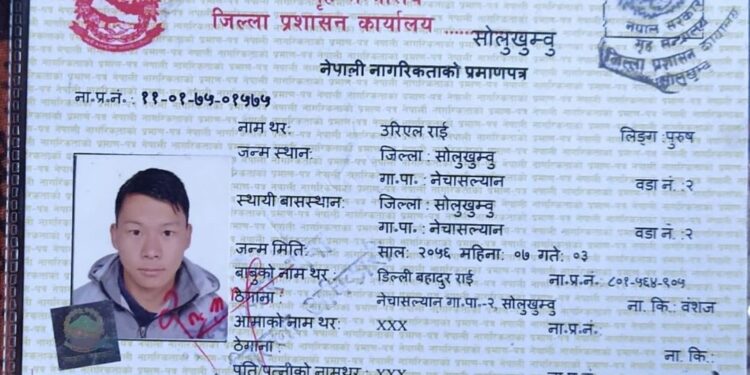 जिल्ला प्रशासन कार्यालय ......सोलुखुम्वु
नेपाल सरकार
गृह मन्त्रालय
जिल्ला प्रशासन कार्यालय
सोलुखुम्वु
नेपाली नागरिकताको प्रमाणपत्र
ना.प्र.नं. : ११-०१-७५-०१५७५
नाम थर: उरिएल राई लिङ्ग : पुरुष
जन्म स्थान: जिल्ला : सोलुखुम्वु
गा.पा. : नेचासल्यान वडा नं. :२
स्थायी बासस्थान: जिल्ला : सोलुखुम्वु
गा.पा. : नेचासल्यान वडा नं. :२
जन्म मिति: साल: २०५६ महिना: ०७ गते: ०३
बाबुको नाम थर: डिल्ली बहादुर राई ना.प्र.नं. ८०१-५६४-९०५
ठेगाना: नेचासल्यान गा.पा.-२, सोलुखुम्वु ना. कि.: वंशज
आमाको नाम थर: XXX ना.प्र.नं.
ठेगाना: ना. कि.:
पति/पत्नीको नामथर: XXX